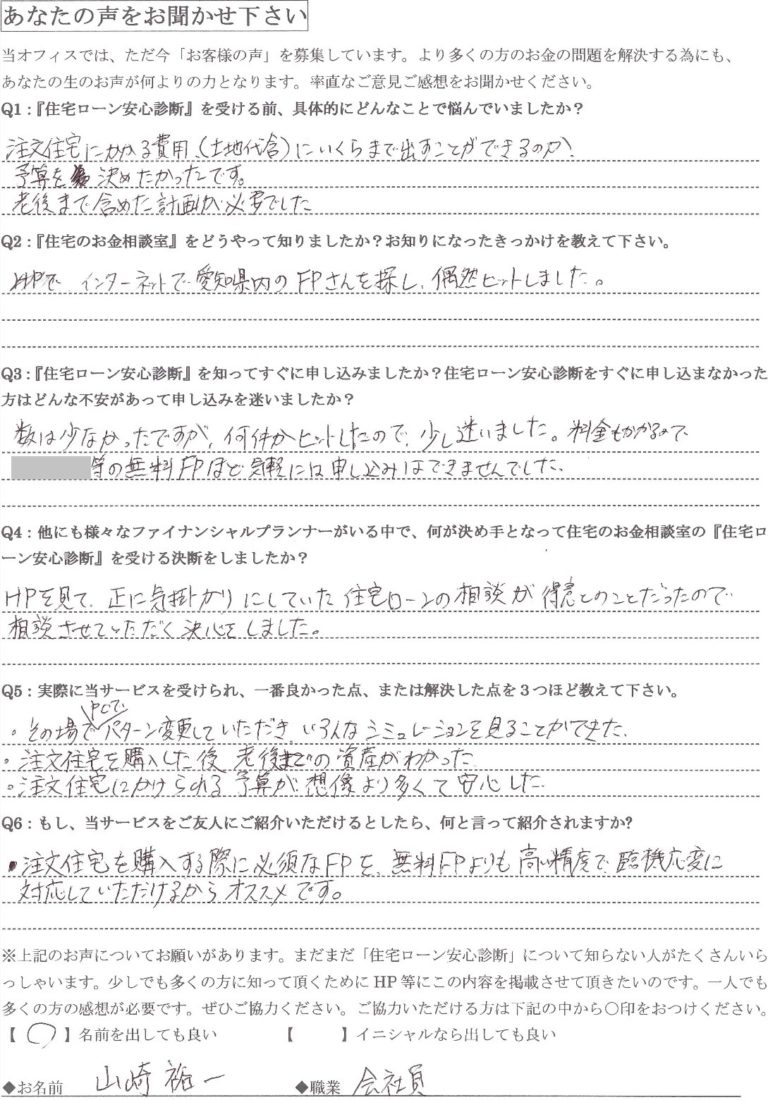 あなたの声をお聞かせ下さい
当オフィスでは、ただ今「お客様の声」を募集しています。より多くの方のお金の問題を解決する為にも、
あなたの生のお声が何よりの力となります。率直なご意見ご感想をお聞かせください。
Q1:『住宅ローン安心診断』を受ける前、具体的にどんなことで悩んでいましたか？
注文住宅にかかる費用（土地代含）にいくらまで出すことができるのか、
予算を決めたかったです。
老後まで含めた計画が必要でした
Q2:『住宅のお金相談室』をどうやって知りましたか？お知りになったきっかけを教えて下さい。
HPで インターネットで愛知県内のFPさんを探し、偶然ヒットしました。
Q3:『住宅ローン安心診断』を知ってすぐに申し込みましたか？住宅ローン安心診断をすぐに申し込まなかった
方はどんな不安があって申し込みを迷いましたか？
数は少なかったですが、何件かヒットしたので、少し迷いました。料金もかかるので
等の無料FPほど気軽には申し込みはできませんでした。
Q4:他にも様々なファイナンシャルプランナーがいる中で、何が決め手となって住宅のお金相談室の『住宅ロ
ーン安心診断』を受ける決断をしましたか？
HPを見て、正に気掛かりにしていた住宅ローンの相談が得意とのことだったので
相談させていただく決心をしました。
Q5:実際に当サービスを受けられ、一番良かった点、または解決した点を３つほど教えて下さい。
・その場でPCでパターン変更していただき、いろんなシミュレーションを見ることができた、
・注文住宅を購入した後、老後までの資産がわかった
・注文住宅にかけられる予算が想像より多くて安心した
Q6:もし、当サービスをご友人にご紹介いただけるとしたら、何と言って紹介されますか?
・注文住宅を購入する際に必須なFPを、無料FPよりも高い精度で、臨機応変に
対応していただけるからオススメです。
※上記のお声についてお願いがあります。まだまだ「住宅ローン安心診断」について知らない人がたくさんいら
っしゃいます。少しでも多くの方に知って頂くために HP 等にこの内容を掲載させて頂きたいのです。一人でも
多くの方の感想が必要です。ぜひご協力ください。ご協力いただける方は下記の中から〇印をおつけください。
【 〇 】名前を出しても良い 【 】イニシャルなら出しても良い
◆お名前 山崎 裕一 ◆職業 会社員